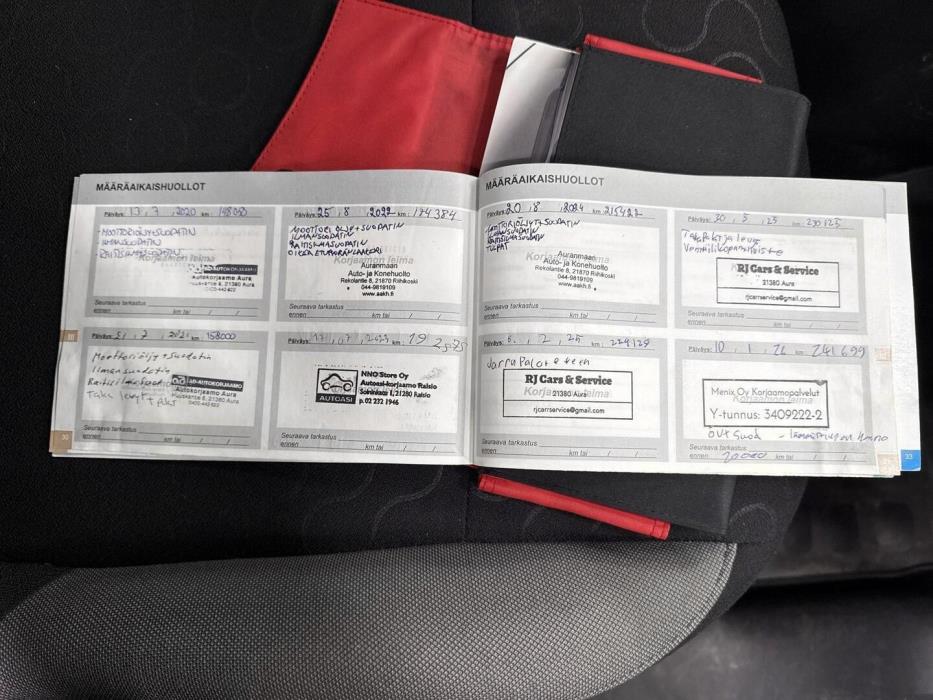 MÄÄRÄAIKAISHUOLLOT
Päiväys: 17 , 7 , 2020 km : 148000
- MOOTTORIÖLJY+SUODATIN
- ILMANSUODATIN
- RAITISILMASUODATIN
Korjaamon leima
AD-AUTOKORJAAMO
Autokorjaamo Aura
21380 Aura
Seuraava tarkastus
ennen km tai / /
Päiväys: 25 , 8 , 2022 km : 174384
MOOTTORIÖLJY+SUODATIN
ILMANSUODATIN
RAITISILMASUODATIN
Korjaamon leima
Auranmaan
Auto- ja Konehuolto
Rekolantie 8, 21870 Riihikoski
044-9819109
www.aakh.fi
Seuraava tarkastus
ennen km tai / /
Päiväys: 21 , 7 , 2021 km : 158000
Moottoriöljy+suodatin
Ilmansuodatin
Raitisilmasuodatin
AD-AUTOKORJAAMO
Autokorjaamo Aura
21380 Aura
Seuraava tarkastus
ennen km tai / /
Päiväys: 17 , 07 , 2023 km :
NNO Store Oy
Autoasi-korjaamo Raisio
21280 Raisio
p. 02 232 1946
AUTOASI
Seuraava tarkastus
ennen km tai / /
30
MÄÄRÄAIKAISHUOLLOT
Päiväys: 20 , 8 , 2024 km : 215427
MOOTTORIÖLJY+SUODATIN
ILMANSUODATIN
RAITISILMASUODATIN
TULPAT
Korjaamon leima
Auranmaan
Auto- ja Konehuolto
Rekolantie 8, 21870 Riihikoski
044-9819109
www.aakh.fi
Seuraava tarkastus
ennen km tai / /
Päiväys: 30 , 5 , 25 km : 230125
Takapalat ja levyt
Venttiilikopan tiiviste
RJ Cars & Service
21380 Aura
rjcarrservice@gmail.com
Seuraava tarkastus
ennen km tai / /
Päiväys: 6 , 2 , 25 km : 224129
Jarrupalat eteen
RJ Cars & Service
21380 Aura
rjcarrservice@gmail.com
Seuraava tarkastus
ennen km tai / /
Päiväys: 10 , 1 , 26 km : 241699
Menix Oy Korjaamopalvelut
Korjaamon leima
Y-tunnus: 3409222-2
Seuraava tarkastus
ennen 20000 km tai / /
33